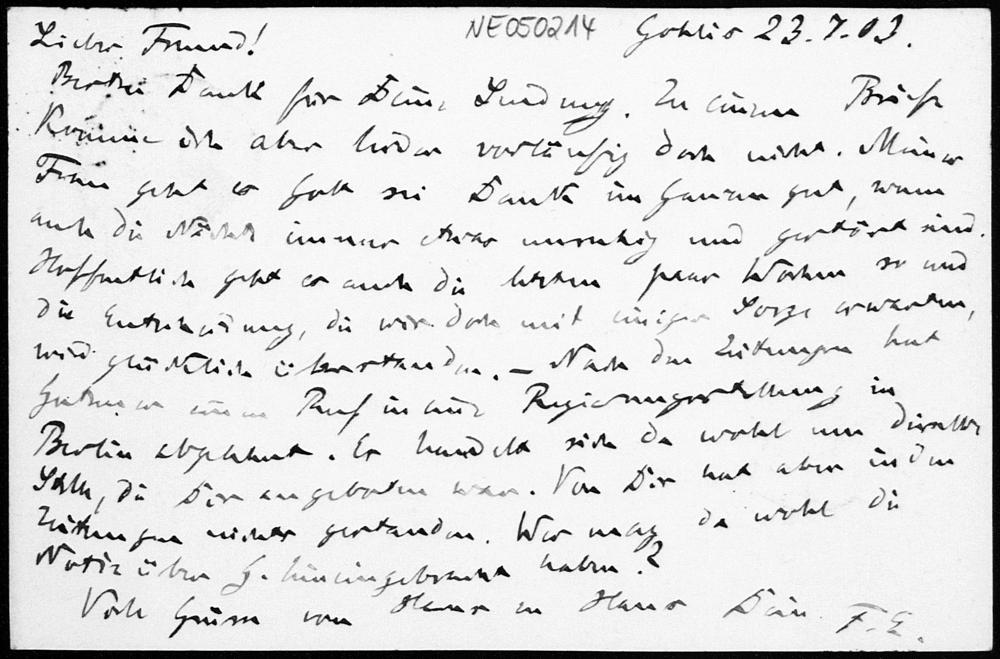 NE050214 Gohlis 23.7.03.
Lieber Freund!
Besten Dank für Deine Sendung. Zu einem Briefe
komme ich aber leider vorläufig doch nicht. Meiner
Frau geht es Gott sei Dank im Ganzen gut, wenn
auch die Nächte immer etwas unruhig und gestört sind.
Hoffentlich geht es auch die letzten paar Wochen so und
die Entbindung, die wir doch mit einiger Sorge erwarten,
wird glücklich überstanden. – Nach den Zeitungen hat
einen Ruf in eine Regierungsstellung in
Berlin abgelehnt. Es handelt sich da wohl um dieselbe
Stelle, die Dir angeboten war. Von Dir hat aber in den
Zeitungen nichts gestanden. Wer mag da wohl die
Notiz über G. hineingebracht haben?
Viele Grüsse von Haus zu Haus Dein F. E.